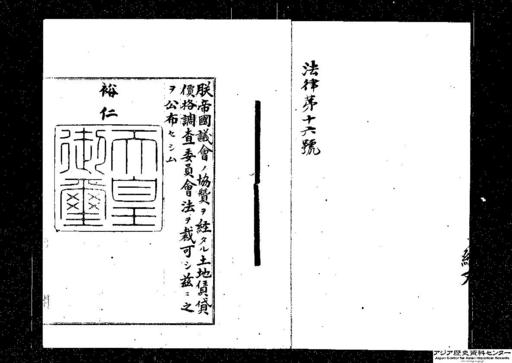 法律第十六號
朕帝國議會ノ協贊ヲ經タル土地賃貸
價格調査委員會法ヲ裁可シ茲ニ之
ヲ公布セシム
裕仁
天皇
御璽
アジア歴史資料センター
Japan Center for Asian Historical Records